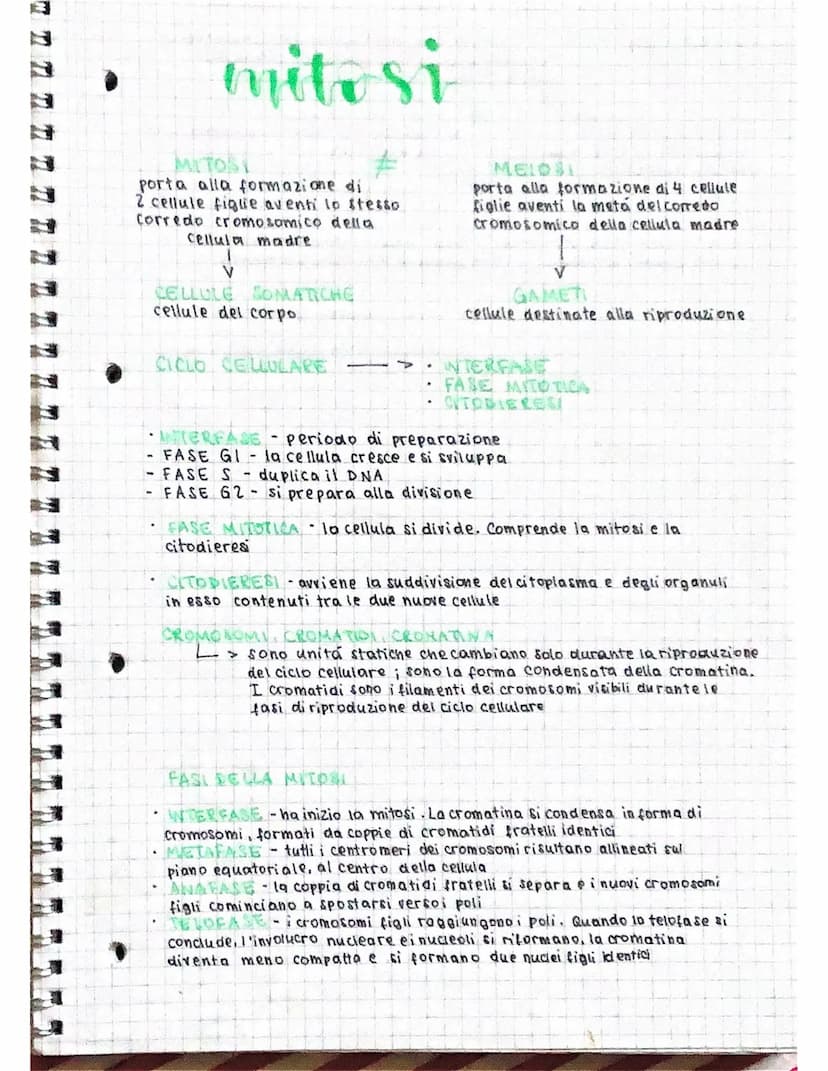 mitosi
MITOSI ≠ MEIOSI
porta alla formazione di
2 cellule figlie aventi lo stesso
corredo cromosomico della
cellula madre
porta alla formazione di 4 cellule
figlie aventi la metá del corredo
cromosomico della cellula madre
CELLULE SOMATICHE
cellule del corpo
GAMETI
cellule destinate alla riproduzione
CICLO CELLULARE —> · INTERFASE
· FASE MITOTICA
· CITODIERESI
· INTERFASE - periodo di preparazione
- FASE G1 - la cellula cresce e si sviluppa
- FASE S - duplica il DNA
- FASE G2 - si prepara alla divisione
· FASE MITOTICA - la cellula si divide. Comprende la mitosi e la
citodieresi
· CITODIERESI - avviene la suddivisione del citoplasma e degli organuli
in esso contenuti tra le due nuove cellule
CROMOSOMI, CROMATIDI, CROMATINA
> sono unitá statiche che cambiano solo durante la riproduzione
del ciclo cellulare ; sono la forma condensata della cromatina.
I cromatidi sono i filamenti dei cromosomi visibili durante le
fasi di riproduzione del ciclo cellulare
FASI DELLA MITOSI
· INTERFASE - ha inizio la mitosi. La cromatina si condensa in forma di
cromosomi, formati da coppie di cromatidi fratelli identici
· METAFASE - tutti i centromeri dei cromosomi risultano allineati sul
piano equatoriale, al centro della cellula
· ANAFASE - la coppia di cromatidi fratelli si separa e i nuovi cromosomi
figli cominciano a spostarsi verso i poli
· TELOFASE - i cromosomi figli raggiungono i poli. Quando la telofase si
conclude, l'involucro nucleare e i nucleoli si riformano, la cromatina
diventa meno compatta e si formano due nuclei figli identici